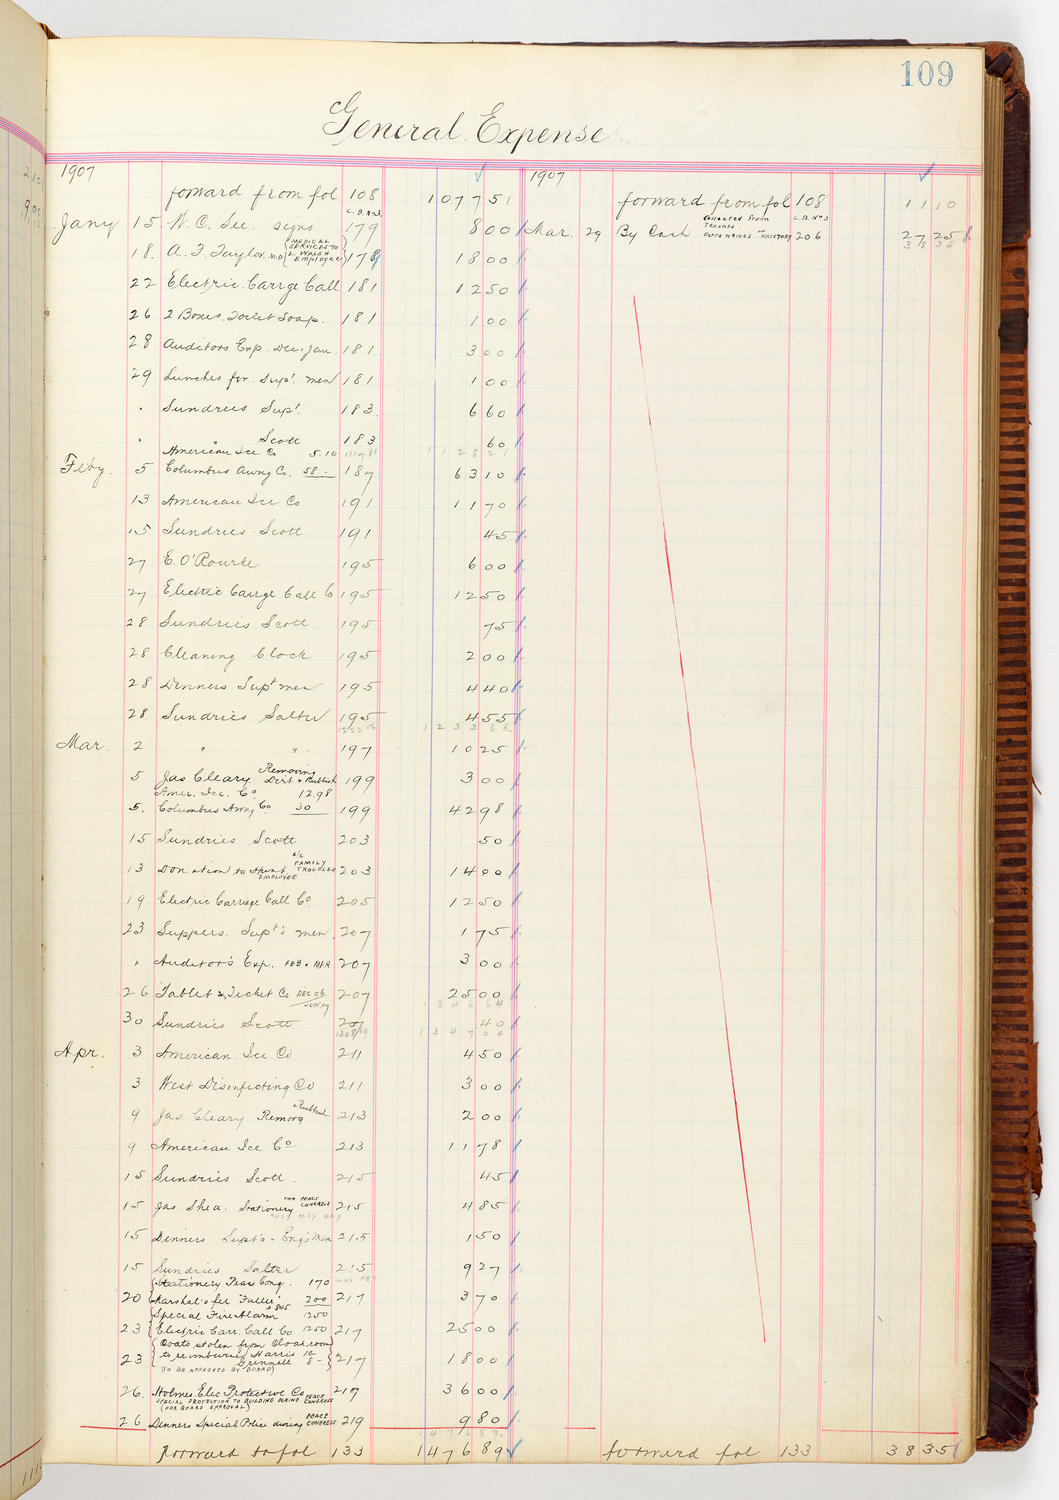 109
General Expense
1907
forward from fol 108 1077 51
C.B. No 3.
Jany 15 W. C. See. signs 179 8 00
18. A. F. Taylor MD (MEDICAL SERVICES TO L. WALSH Employee) 179 18 00
22 Electric Carrge Call 181 12 50
26 2 Boxes Toilet Soap. 181 1 00
28 Auditors Exp. Dec. Jan 181 3 00
29 Lunches for Supt. men 181 1 00
" Sundries Supt. 183 6 60
" " Scott 183 60
1128 21
American Ice Co 5.10
Feby. 5 Columbus Awng Co. 58.- 187 63 10
13 American Ice Co 191 11 70
15 Sundries Scott 191 45
27 E. O'Rourke 195 6 00
27 Electric Carrge Call Co 195 12 50
28 Sundries Scott 195 75
28 Cleaning Clock 195 2 00
28 Dinners Supt men 195 4 40
28 Sundries Salter 195 4 55
1233 66
Mar. 2 " " 197 10 25
5 Jas Cleary Removing Dirt & Rubbish 199 3 00
Amer. Ice. Co. 12.98
5. Columbus Awng Co 30 199 42 98
15 Sundries Scott 203 50
13 Donation to Hunt EMPLOYEE A/C FAMILY TROUBLES 203 14 00
19 Electric Carriage Call Co. 205 12 50
23 Suppers. Supt's men. 207 1 75
" Auditor's Exp. FEB. & MAR 207 3 00
26 Tablet & Ticket Co DEC 06 JUN. 07 207 25 00
1346 64
30 Sundries Scott 207 40
1347 04
Apr. 3 American Ice Co 211 4 50
3 West Disinfecting Co 211 3 00
9 Jas. Cleary Remvg Rubbish 213 2 00
9 American Ice Co 213 11 78
15 Sundries Scott 215 45
15 Jas. Shea. Stationery FOR PEACE CONGRESS 215 4 85
15 Dinners Supt's - Eng's Men 215 1 50
15 Sundries Salter 215 9 27
Stationery Peace Cong. 1 70
20 Marshal's fee "Fuller" 2 00 217 3 70
Special Fire Alarm 12 50
23 Electric Carr. Call Co 12 50 217 25 00
Coats stolen from Cloakroom
23 to reimbursing Harris 10 Grinnell 8 - 217 18 00
(TO BE APPROVED BY BOARD)
26. Holmes Elec Protective Co PEACE CONGRESS 217 36 00
SPECIAL PROTECTION TO BUILDING DURING
(FOR BOARD APPROVAL)
26 Dinners Special Police during PEACE CONGRESS 219 9 80
1476 89
forward to fol 133 1476 89
1907
forward from fol 108 11 10
C.B. No 3
Mar. 29 By Cash Collected From Tenants. Extra names on DIRECTORY 206 27 25
38 35
forward fol 133 38 35